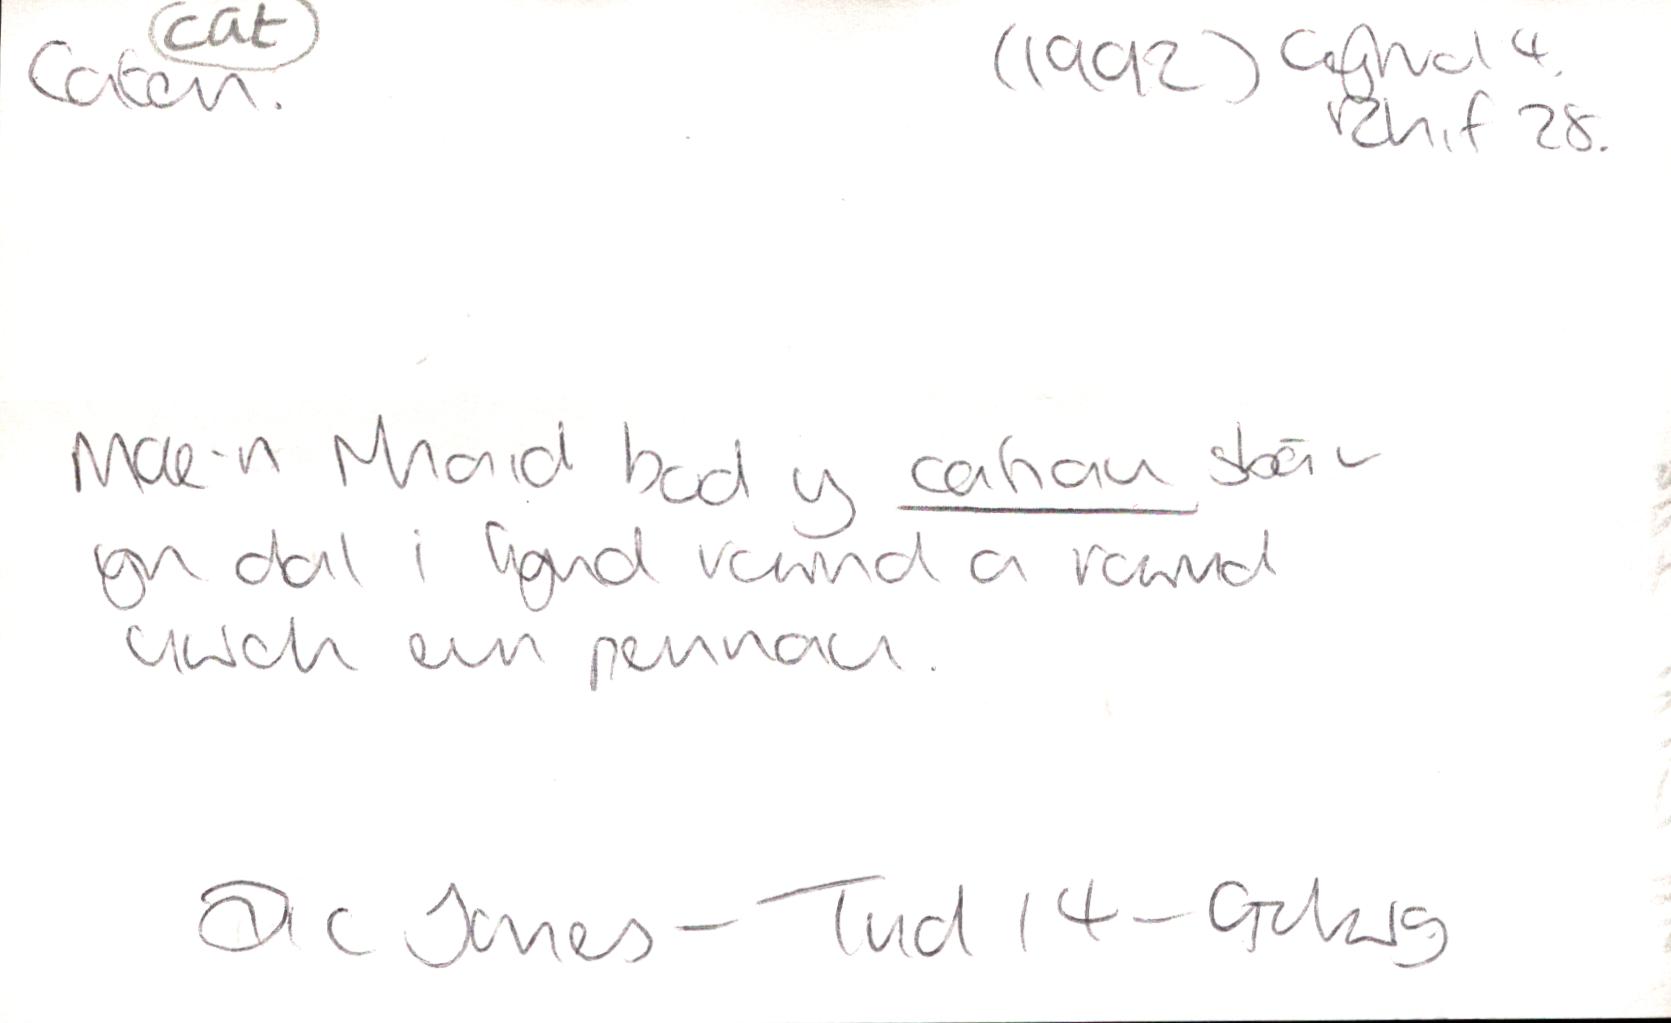 cat
Caten.
(1992) Cyfrol 4.
Rhif 28.
Mae'n rhaid bod y catiau
yn dal i fynd rownd a rownd
uwch ein pennau.
Dic Jones - Tud 14 - Golwg